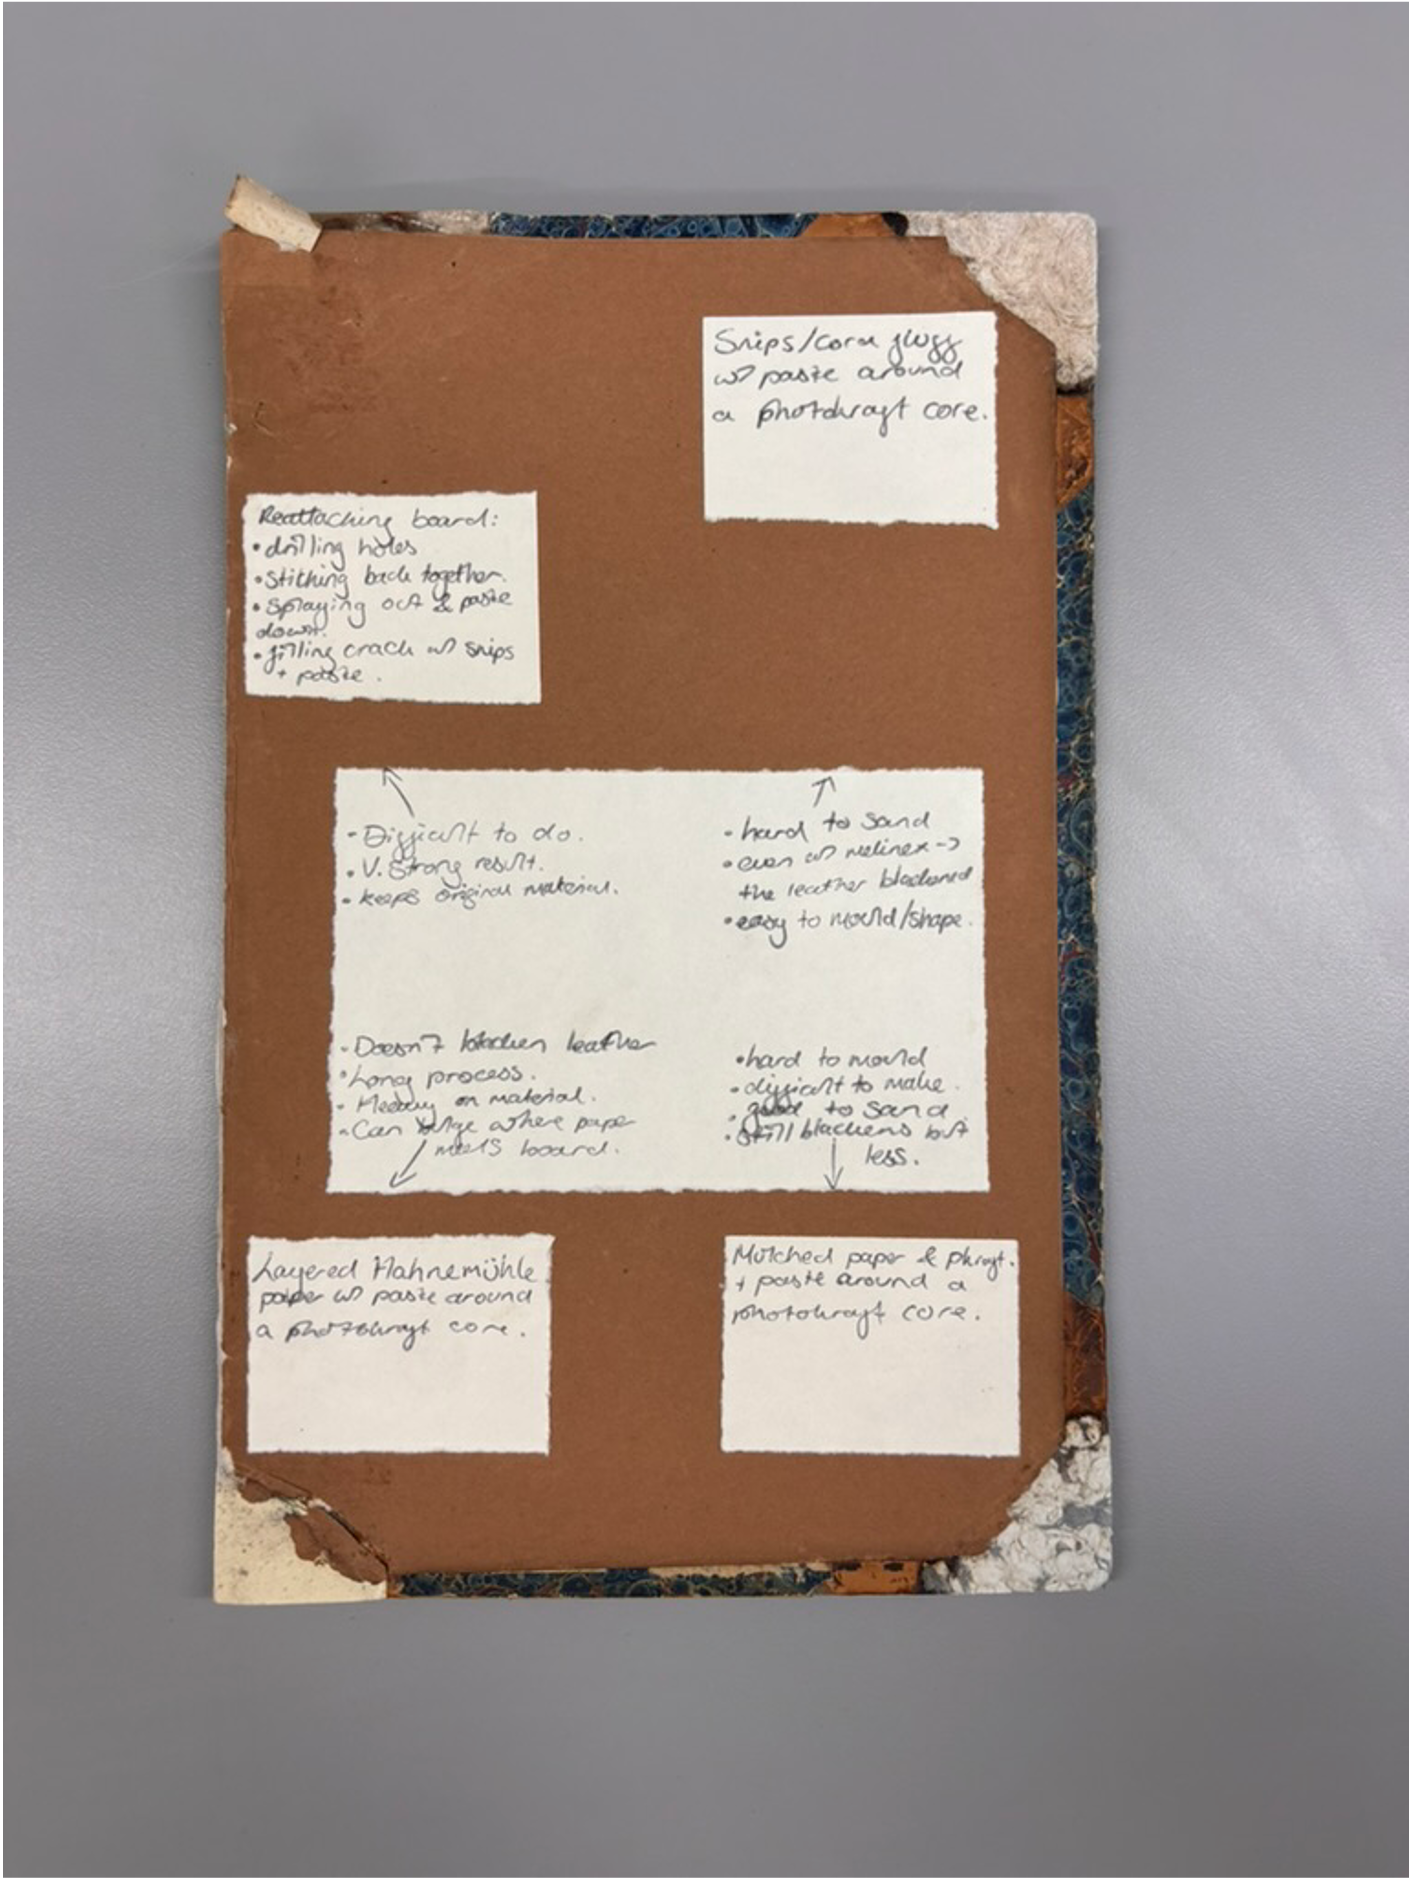 Snips/corn fluff
w/ paste around
a photokraft core.
Reattaching board:
• drilling holes
• Stitching back together.
• splaying out & paste
down.
• filling crack w/ snips
+ paste.
- Difficult to do.
• V. Strong result.
• keeps original material.
• hard to sand
• even w/ melinex ->
the leather blackened
• easy to mould/shape.
- Doesn't blacken leather
• Long process.
- Heavy on material.
- Can bulge where paper
meets board.
• hard to mould
• difficult to make.
• good to sand
• still blackens but
less.
Layered Hahnemühle
paper w/ paste around
a photokraft core.
Mulched paper & pkraft.
+ paste around a
photokraft core.